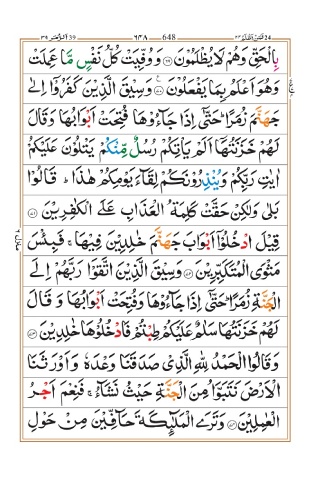 39 الزمر ٣٩ ٦٤٨ 648 فمن اظلم ٢٤ 24
بِالْحَقِّ وَهُمْ لَا يُظْلَمُوْنَ ﴿٦٩﴾ وَ وُفِّيَتْ كُلُّ نَفْسٍ مَّا عَمِلَتْ
وَهُوَ اَعْلَمُ بِمَا يَفْعَلُوْنَ ﴿٧٠﴾ وَسِيْقَ الَّذِيْنَ كَفَرُوْۤا اِلٰى
جَهَنَّمَ زُمَرًا ؕ حَتّٰۤى اِذَا جَآءُوْهَا فُتِحَتْ اَبْوَابُهَا وَقَالَ
لَهُمْ خَزَنَتُهَاۤ اَلَمْ يَاْتِكُمْ رُسُلٌ مِّنْكُمْ يَتْلُوْنَ عَلَيْكُمْ
اٰيٰتِ رَبِّكُمْ وَيُنْذِرُوْنَكُمْ لِقَآءَ يَوْمِكُمْ هٰذَا ؕ قَالُوْا
بَلٰى وَلٰكِنْ حَقَّتْ كَلِمَةُ الْعَذَابِ عَلَى الْكٰفِرِيْنَ ﴿٧١﴾
قِيْلَ ادْخُلُوْۤا اَبْوَابَ جَهَنَّمَ خٰلِدِيْنَ فِيْهَا ۚ فَبِئْسَ
مَثْوَى الْمُتَكَبِّرِيْنَ ﴿٧٢﴾ وَسِيْقَ الَّذِيْنَ اتَّقَوْا رَبَّهُمْ اِلَى
الْجَنَّةِ زُمَرًا ؕ حَتّٰۤى اِذَا جَآءُوْهَا وَفُتِحَتْ اَبْوَابُهَا وَ قَالَ
لَهُمْ خَزَنَتُهَا سَلٰمٌ عَلَيْكُمْ طِبْتُمْ فَادْخُلُوْهَا خٰلِدِيْنَ ﴿٧٣﴾
وَقَالُوا الْحَمْدُ لِلّٰهِ الَّذِيْ صَدَقَنَا وَعْدَهٗ وَاَوْرَثَنَا
الْاَرْضَ نَتَبَوَّاُ مِنَ الْجَنَّةِ حَيْثُ نَشَآءُ ۚ فَنِعْمَ اَجْرُ
الْعٰمِلِيْنَ ﴿٧٤﴾ وَتَرَى الْمَلٰٓئِكَةَ حَآفِّيْنَ مِنْ حَوْلِ